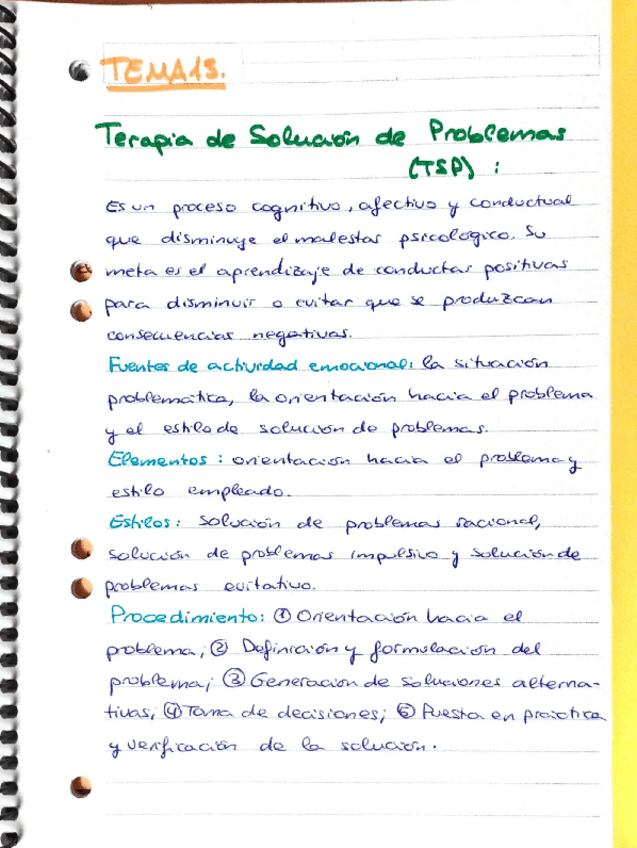 TEMA 13.
Terapia de Solución de Problemas
(TSP) :
Es un proceso cognitivo, afectivo y conductual
que disminuye el malestar psicológico. Su
meta es el aprendizaje de conductas positivas
para disminuir o evitar que se produzcan
consecuencias negativas.
Fuentes de actividad emocional: la situación
problemática, la orientación hacia el problema
y el estilo de solución de problemas.
Elementos : orientación hacia el problema y
estilo empleado.
Estilos: solución de problemas racional,
solución de problemas impulsivo y solución de
problemas evitativo.
Procedimiento: ① Orientación hacia el
problema; ② Definición y formulación del
problema; ③ Generación de soluciones alterna-
tivas; ④ Toma de decisiones; ⑤ Puesta en práctica
y verificación de la solución.